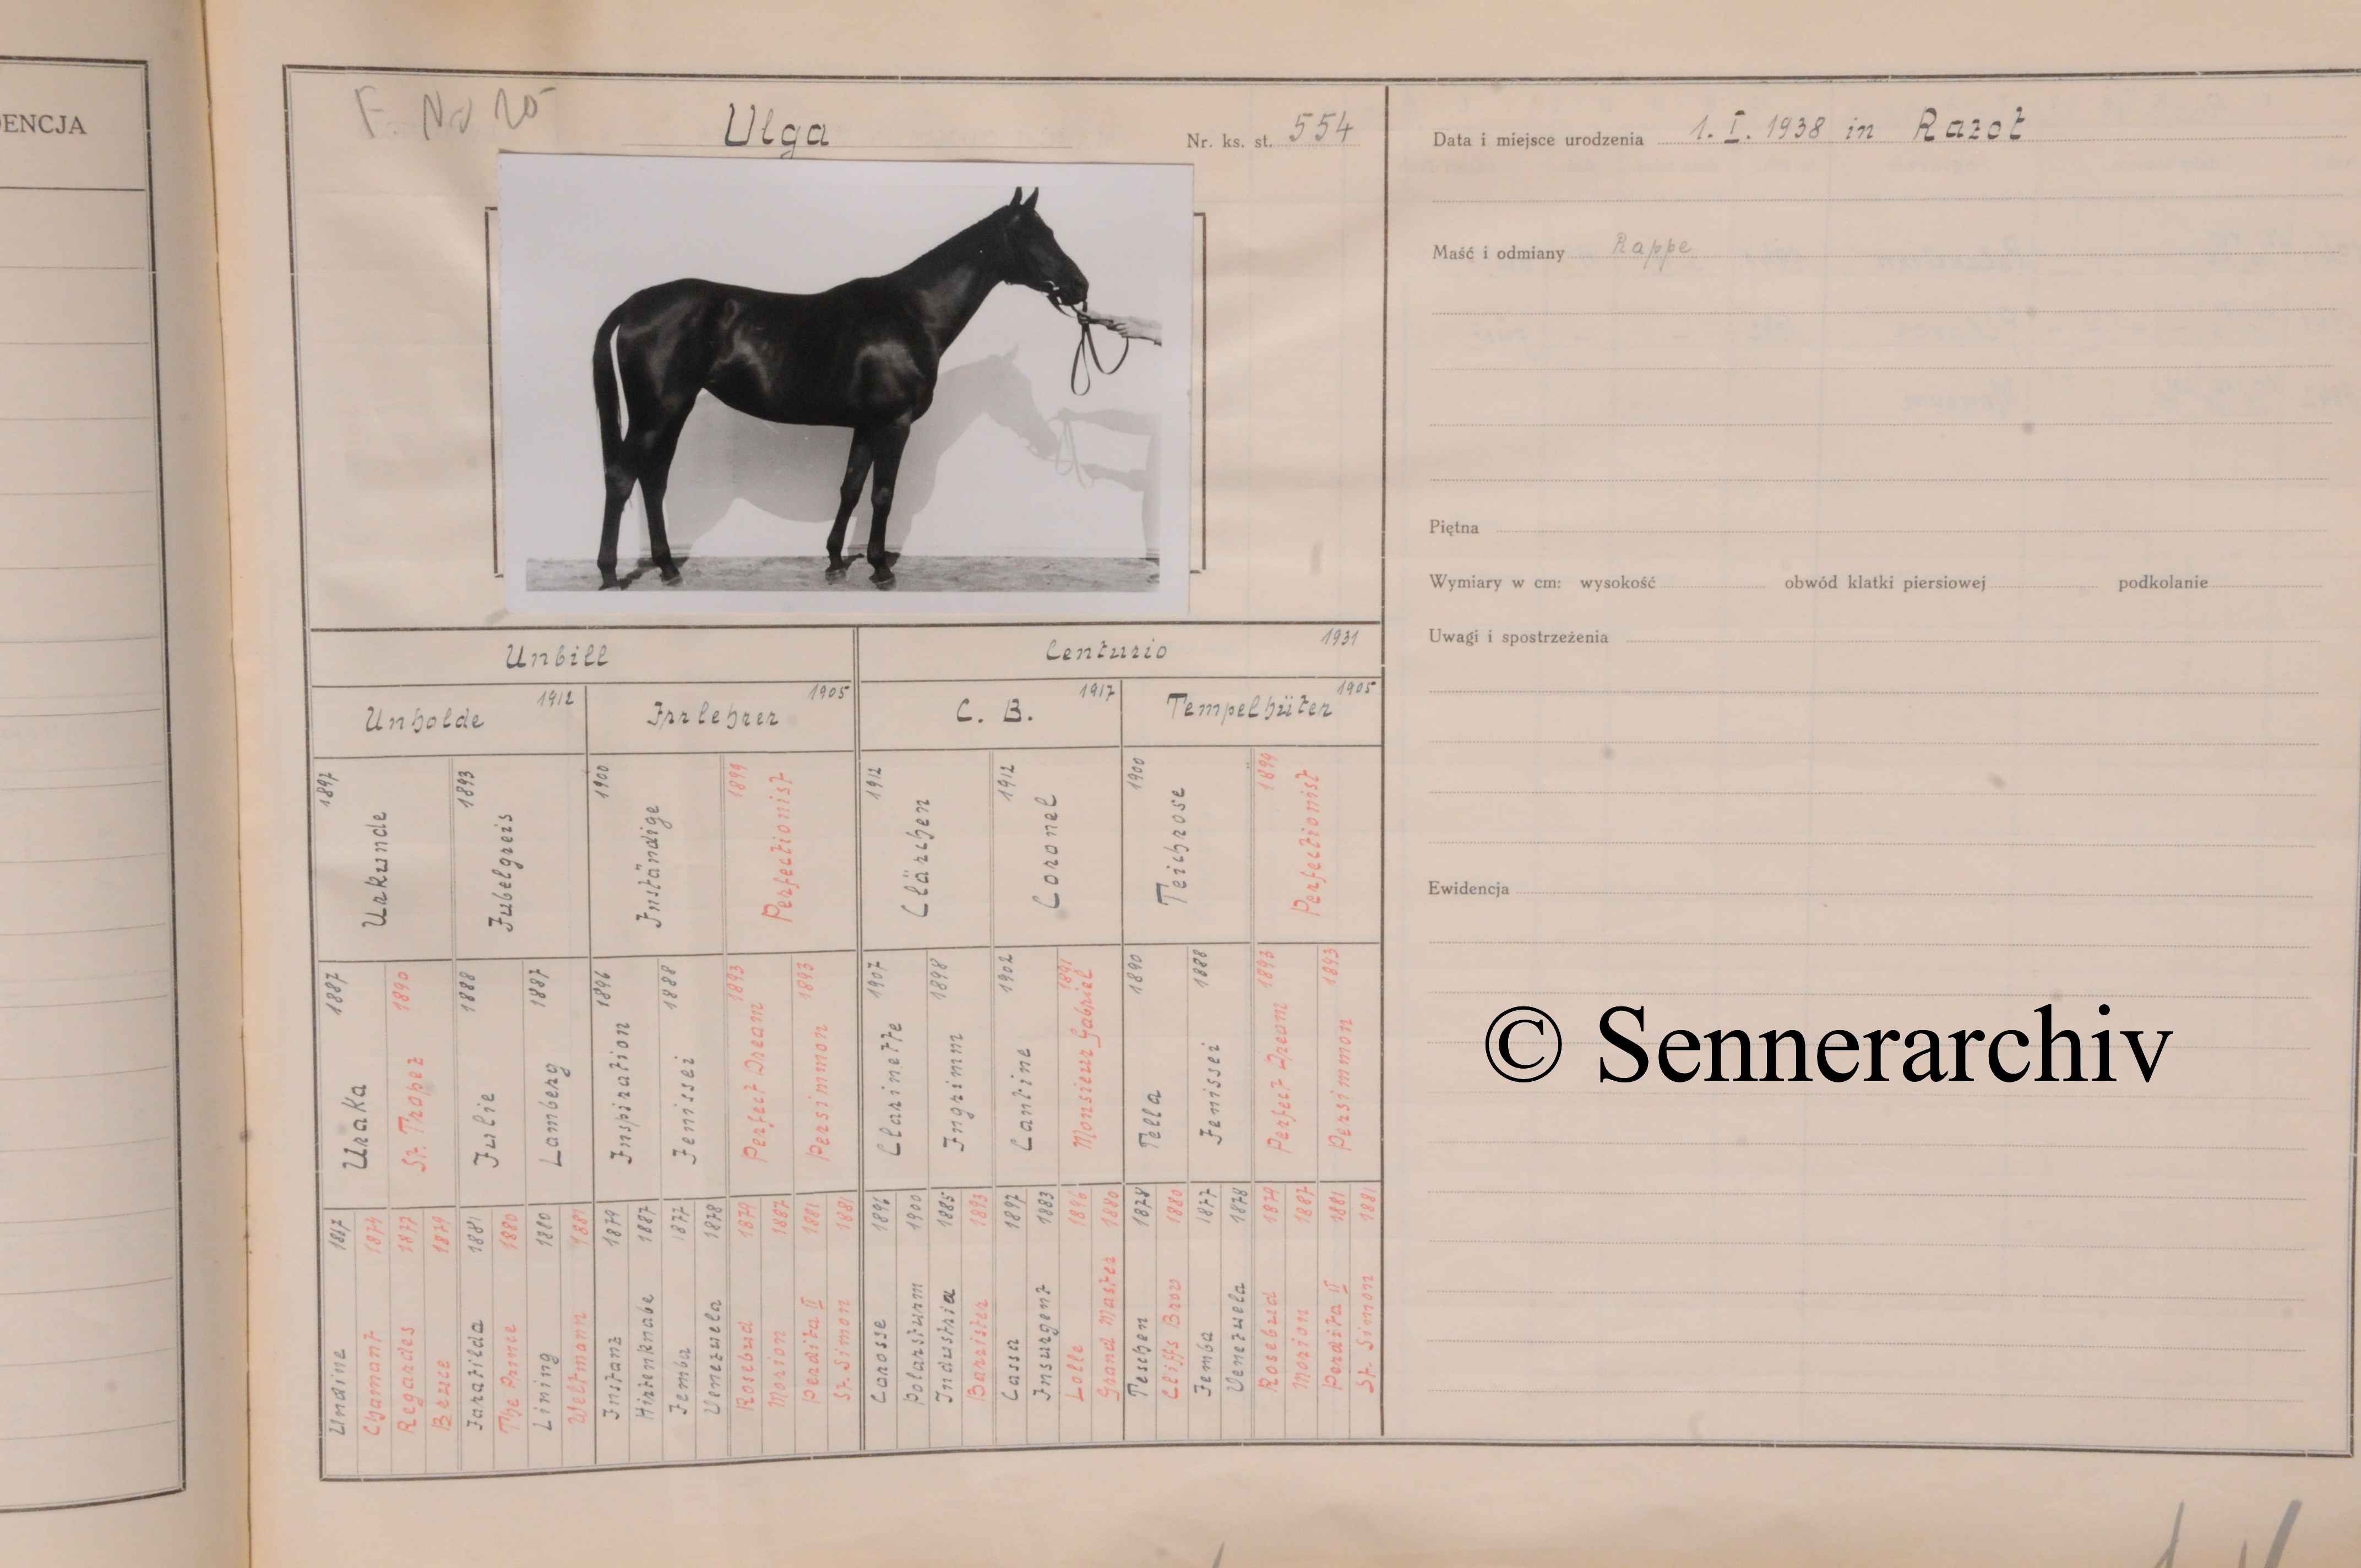 ENCJA
F. No 20
Ulga
Nr. ks. st. 554
Unbill
Centurio 1931
Unholde 1912
Irrlehrer 1905
C. B. 1917
Tempelhüter 1905
Urkunde 1897
Jubelgreis 1893
Inständige 1900
Perfectionist 1899
Clärchen 1912
Coronel 1912
Teichrose 1900
Perfectionist 1899
Uraka 1887
St. Tropez 1890
Julie 1888
Lamberg 1887
Inspiration 1896
Jenissei 1888
Perfect Dream 1893
Persimmon 1893
Clarinette 1907
Ingrimm 1898
Cantine 1902
Monsieur Gabriel 1891
Tella 1890
Jenissei 1888
Perfect Dream 1893
Persimmon 1893
Undine
Chamant 1874
Regardes 1877
Bruce 1879
Jaratilda 1881
The Prince 1880
Lining 1880
Weltmann 1881
Instanz 1879
Hirtenknabe 1887
Jemba 1877
Venezuela 1878
Rosebud 1879
Morion 1887
Perdita II 1881
St. Simon 1881
Carosse 1896
Polarsturm 1900
Industria 1885
Barrister 1893
Cassa 1897
Insurgent 1883
Lolle 1896
Grand Master 1880
Teschen 1878
Cliffs Brow 1880
Jemba 1877
Venezuela 1878
Rosebud 1879
Morion 1887
Perdita II 1881
St. Simon 1881
Data i miejsce urodzenia 1. I. 1938 in Razot
Maść i odmiany Rappe
Piętna
Wymiary w cm: wysokość obwód klatki piersiowej podkolanie
Uwagi i spostrzeżenia
Ewidencja
© Sennerarchiv